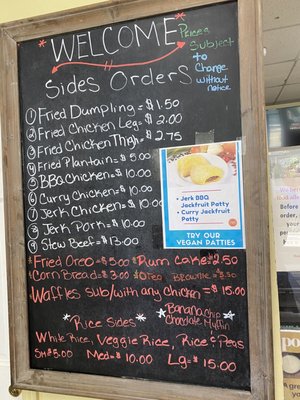 * WELCOME *
Prices
Subject
to
Change
without
Notice
Sides Orders
① Fried Dumpling = $1.50
② Fried Chicken Leg = $2.00
③ Fried Chicken Thgh = $2.75
④ Fried Plantain = $5.00
⑤ BBQ Chicken = $10.00
⑥ Curry Chicken = $10.00
⑦ Jerk Chicken = $10.00
⑧ Jerk Pork = $10.00
⑨ Stew Beef = $13.00
• Jerk BBQ
Jackfruit Patty
• Curry Jackfruit
Patty
TRY OUR
VEGAN PATTIES
* Fried Oreo = $5.00 * Rum Cake = $2.50
* Corn Bread = $3.00 * Oreo Brownie = $3.50
* Waffles Sub/with any Chicken = $15.00
* Banana chip
Chocolate Muffin
* Rice Sides *
White Rice, Veggie Rice, Rice & Peas
Sm $5.00 Med = $10.00 Lg = $15.00
Before
order